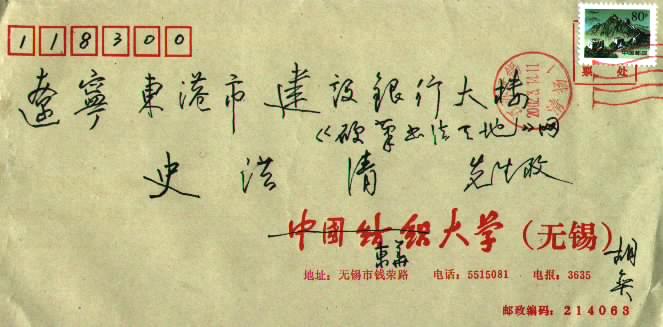 118300
80分
中国邮政
辽寧東港市建設銀行大楼
《硬筆书法天地》网
史洪清 先生收
中国纺织大学(无锡)
東華
胡奂
地址:无锡市钱荣路 电话:5515081 电报:3635
邮政编码:214063